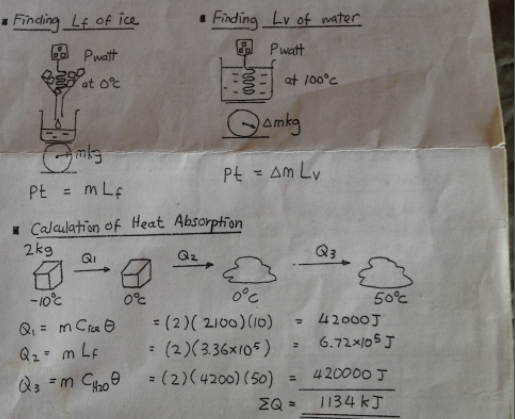 ▪ Finding Lf of ice
P watt
at 0°C
mkg
Pt = mLf
▪ Finding Lv of water
P watt
at 100°C
Δmkg
Pt = ΔmLv
▪ Calculation of Heat Absorption
2kg Q1 Q2 Q3
-10°C 0°C 0°C 50°C
Q1 = m Cice θ = (2)(2100)(10) = 42000J
Q2 = m Lf = (2)(3.36×10⁵) = 6.72×10⁵J
Q3 = m CH2O θ = (2)(4200)(50) = 420000J
ΣQ = 1134kJ